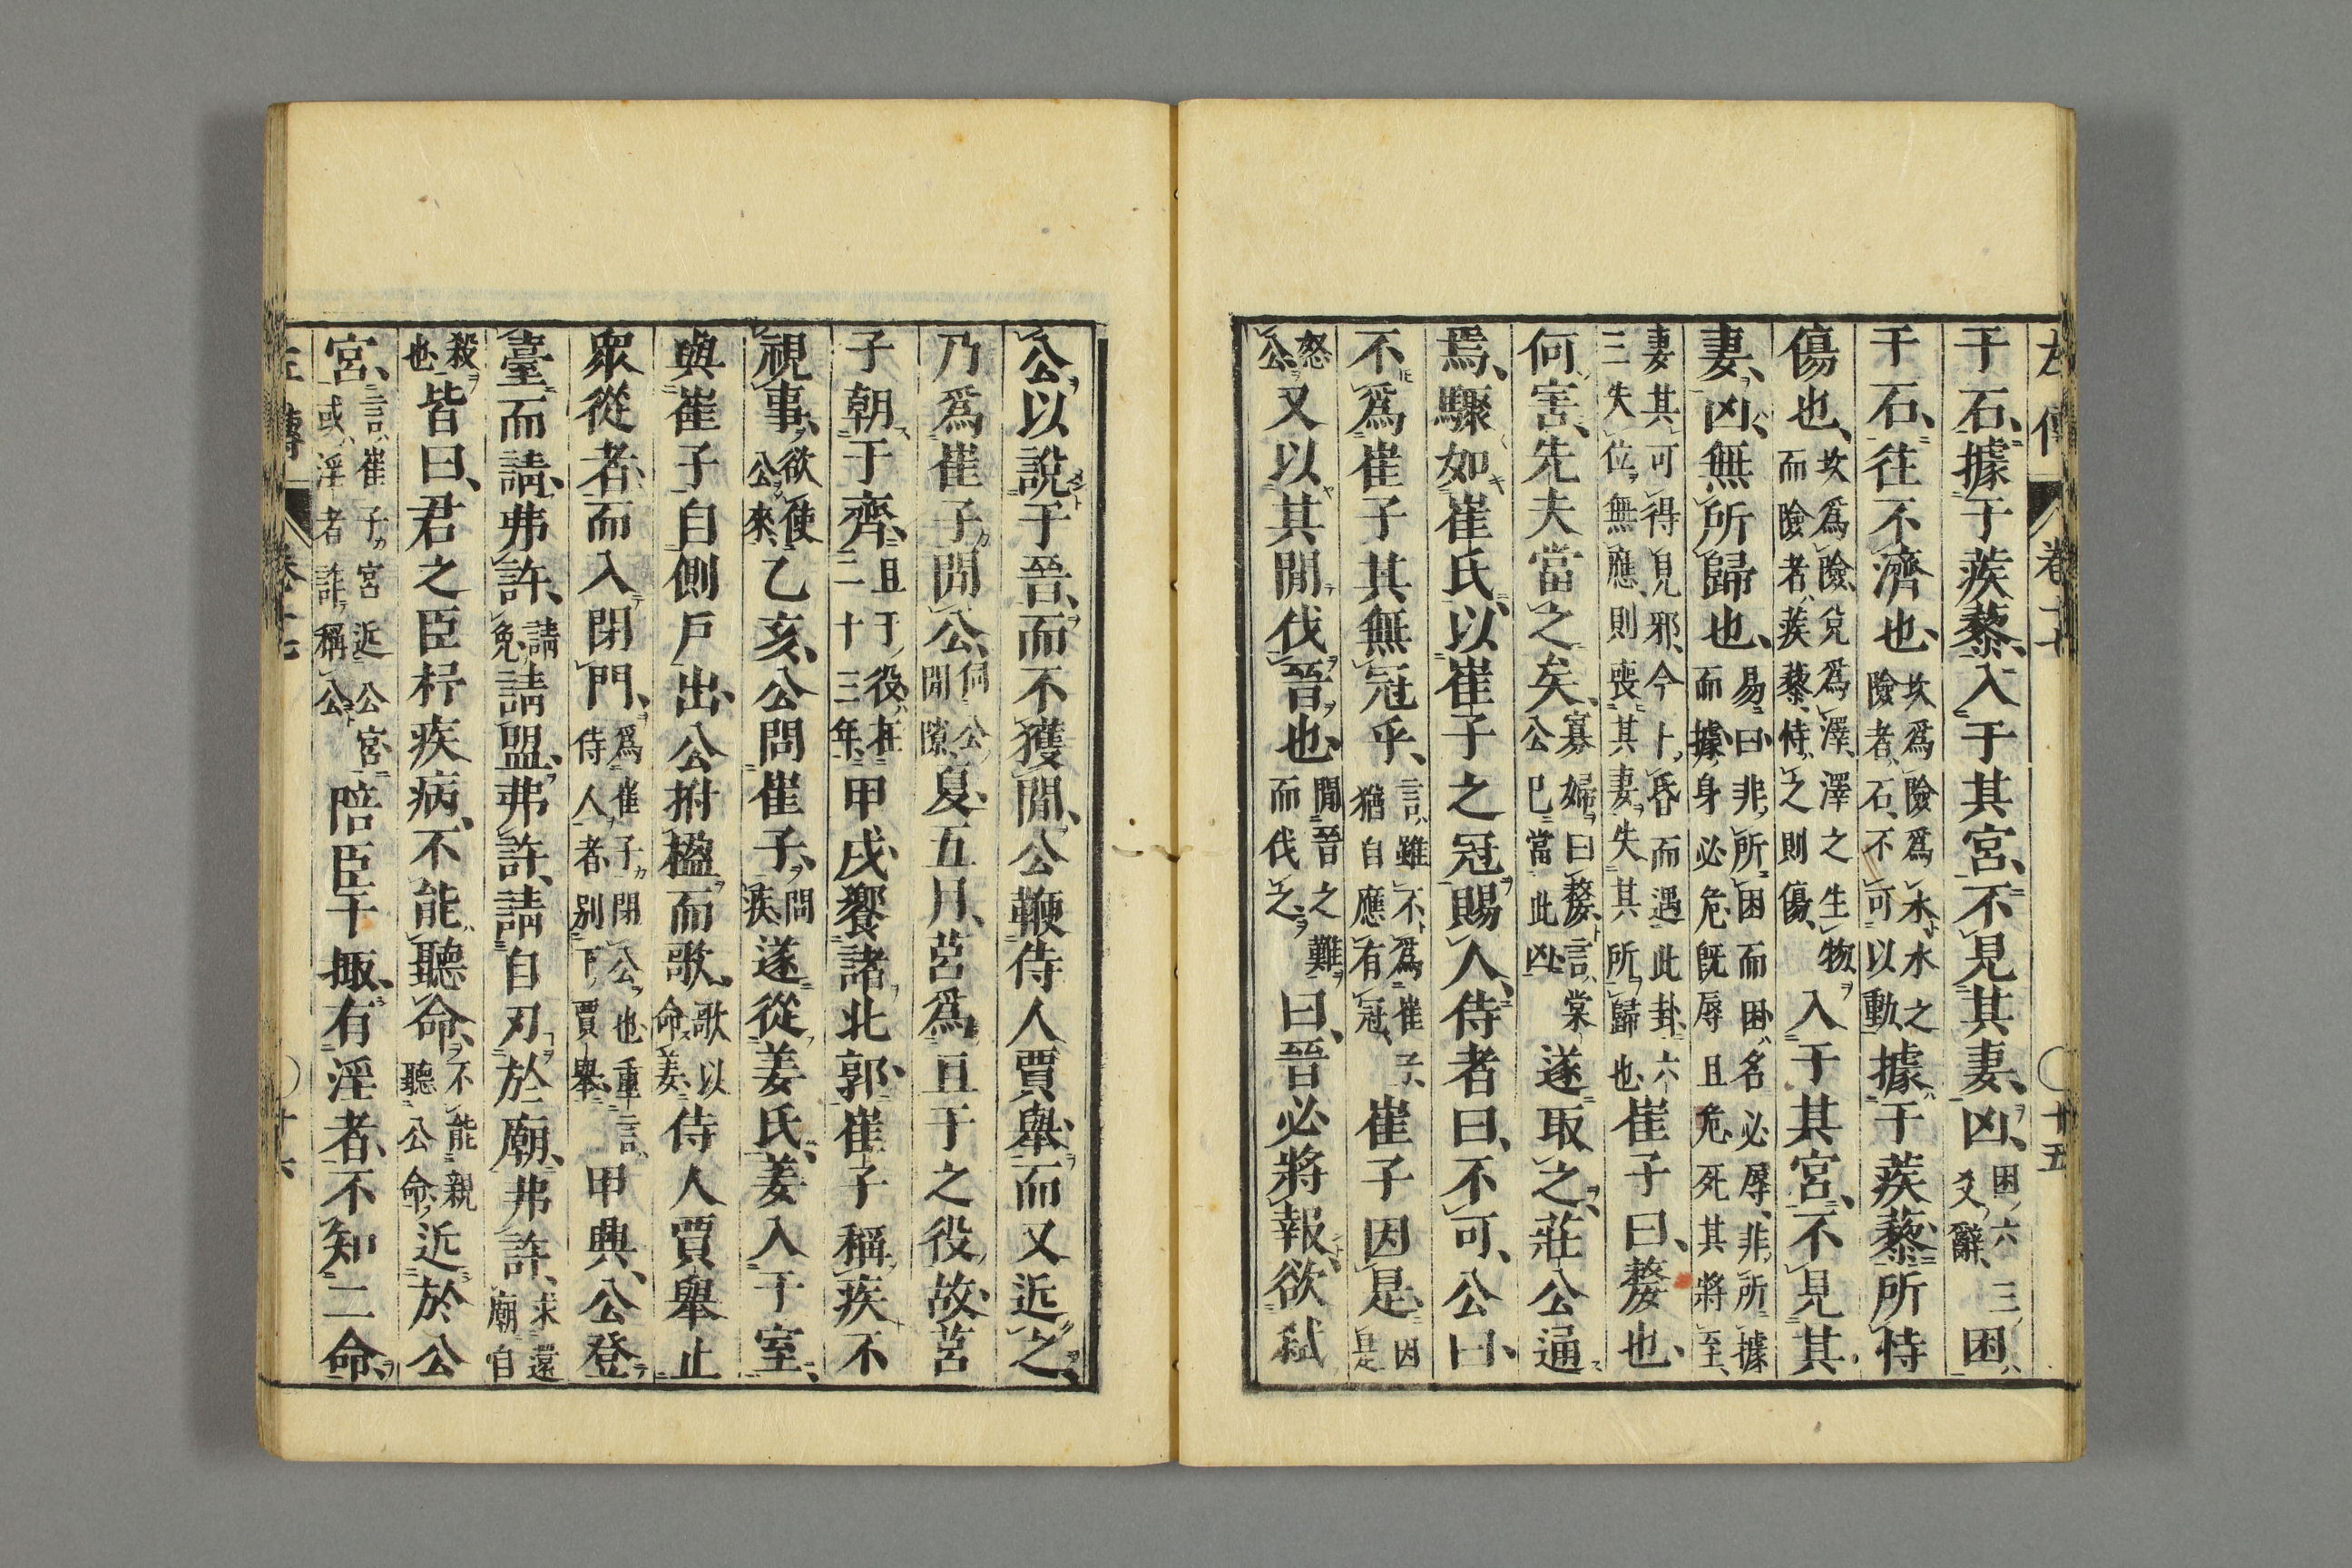 左傳 卷十七 十五
于石、據于蒺藜、入于其宮、不見其妻、凶、困六三爻辭、困
于石、往不濟也、坎爲險爲水水之險者、石、不可以動、據于蒺藜、所恃
傷也、坎爲險、兌爲澤、澤之生物而險者、蒺藜、恃之則傷、入于其宮、不見其
妻、凶、無所歸也、易曰非所困而困、名必辱、非所據而據、身必危、既辱且危、死其將至、
妻其可得見邪、今卜昏而遇此卦、六三失位、無應、則喪其妻、失其所歸也、崔子曰、嫠也、
何害、先夫當之矣、寡婦曰嫠、言棠公已當此凶、遂取之、莊公通
焉、驟如崔氏、以崔子之冠賜人、侍者曰、不可、公曰、
不爲崔子其無冠乎、言雖不爲崔子、猶自應有冠、崔子因是、因是
怒公、又以其閒伐晉也、閒晉之難而伐之、曰、晉必將報、欲弒
公以說于晉、而不獲閒、公鞭侍人賈舉、而又近之、
乃爲崔子閒公、伺公閒隙、夏、五月、莒爲且于之役故、莒
子朝于齊、且于役、在二十三年、甲戌、饗諸北郭、崔子稱疾不
視事、欲使公來、乙亥、公問崔子、問疾、遂從姜氏、姜入于室、
與崔子自側戶出、公拊楹而歌、歌以命姜、侍人賈舉止
眾從者、而入閉門、爲崔子閉公也、重言侍人者、別下賈舉、甲興、公登
臺而請、弗許、請免、請盟、弗許、請自刃於廟、弗許、求還廟自
殺也皆曰、君之臣杼疾病、不能聽命、不能親聽公命、近於公
宮、言崔子宮近公宮、或淫者詐稱公、陪臣干掫、有淫者、不知二命、
左傳 卷十七 十六